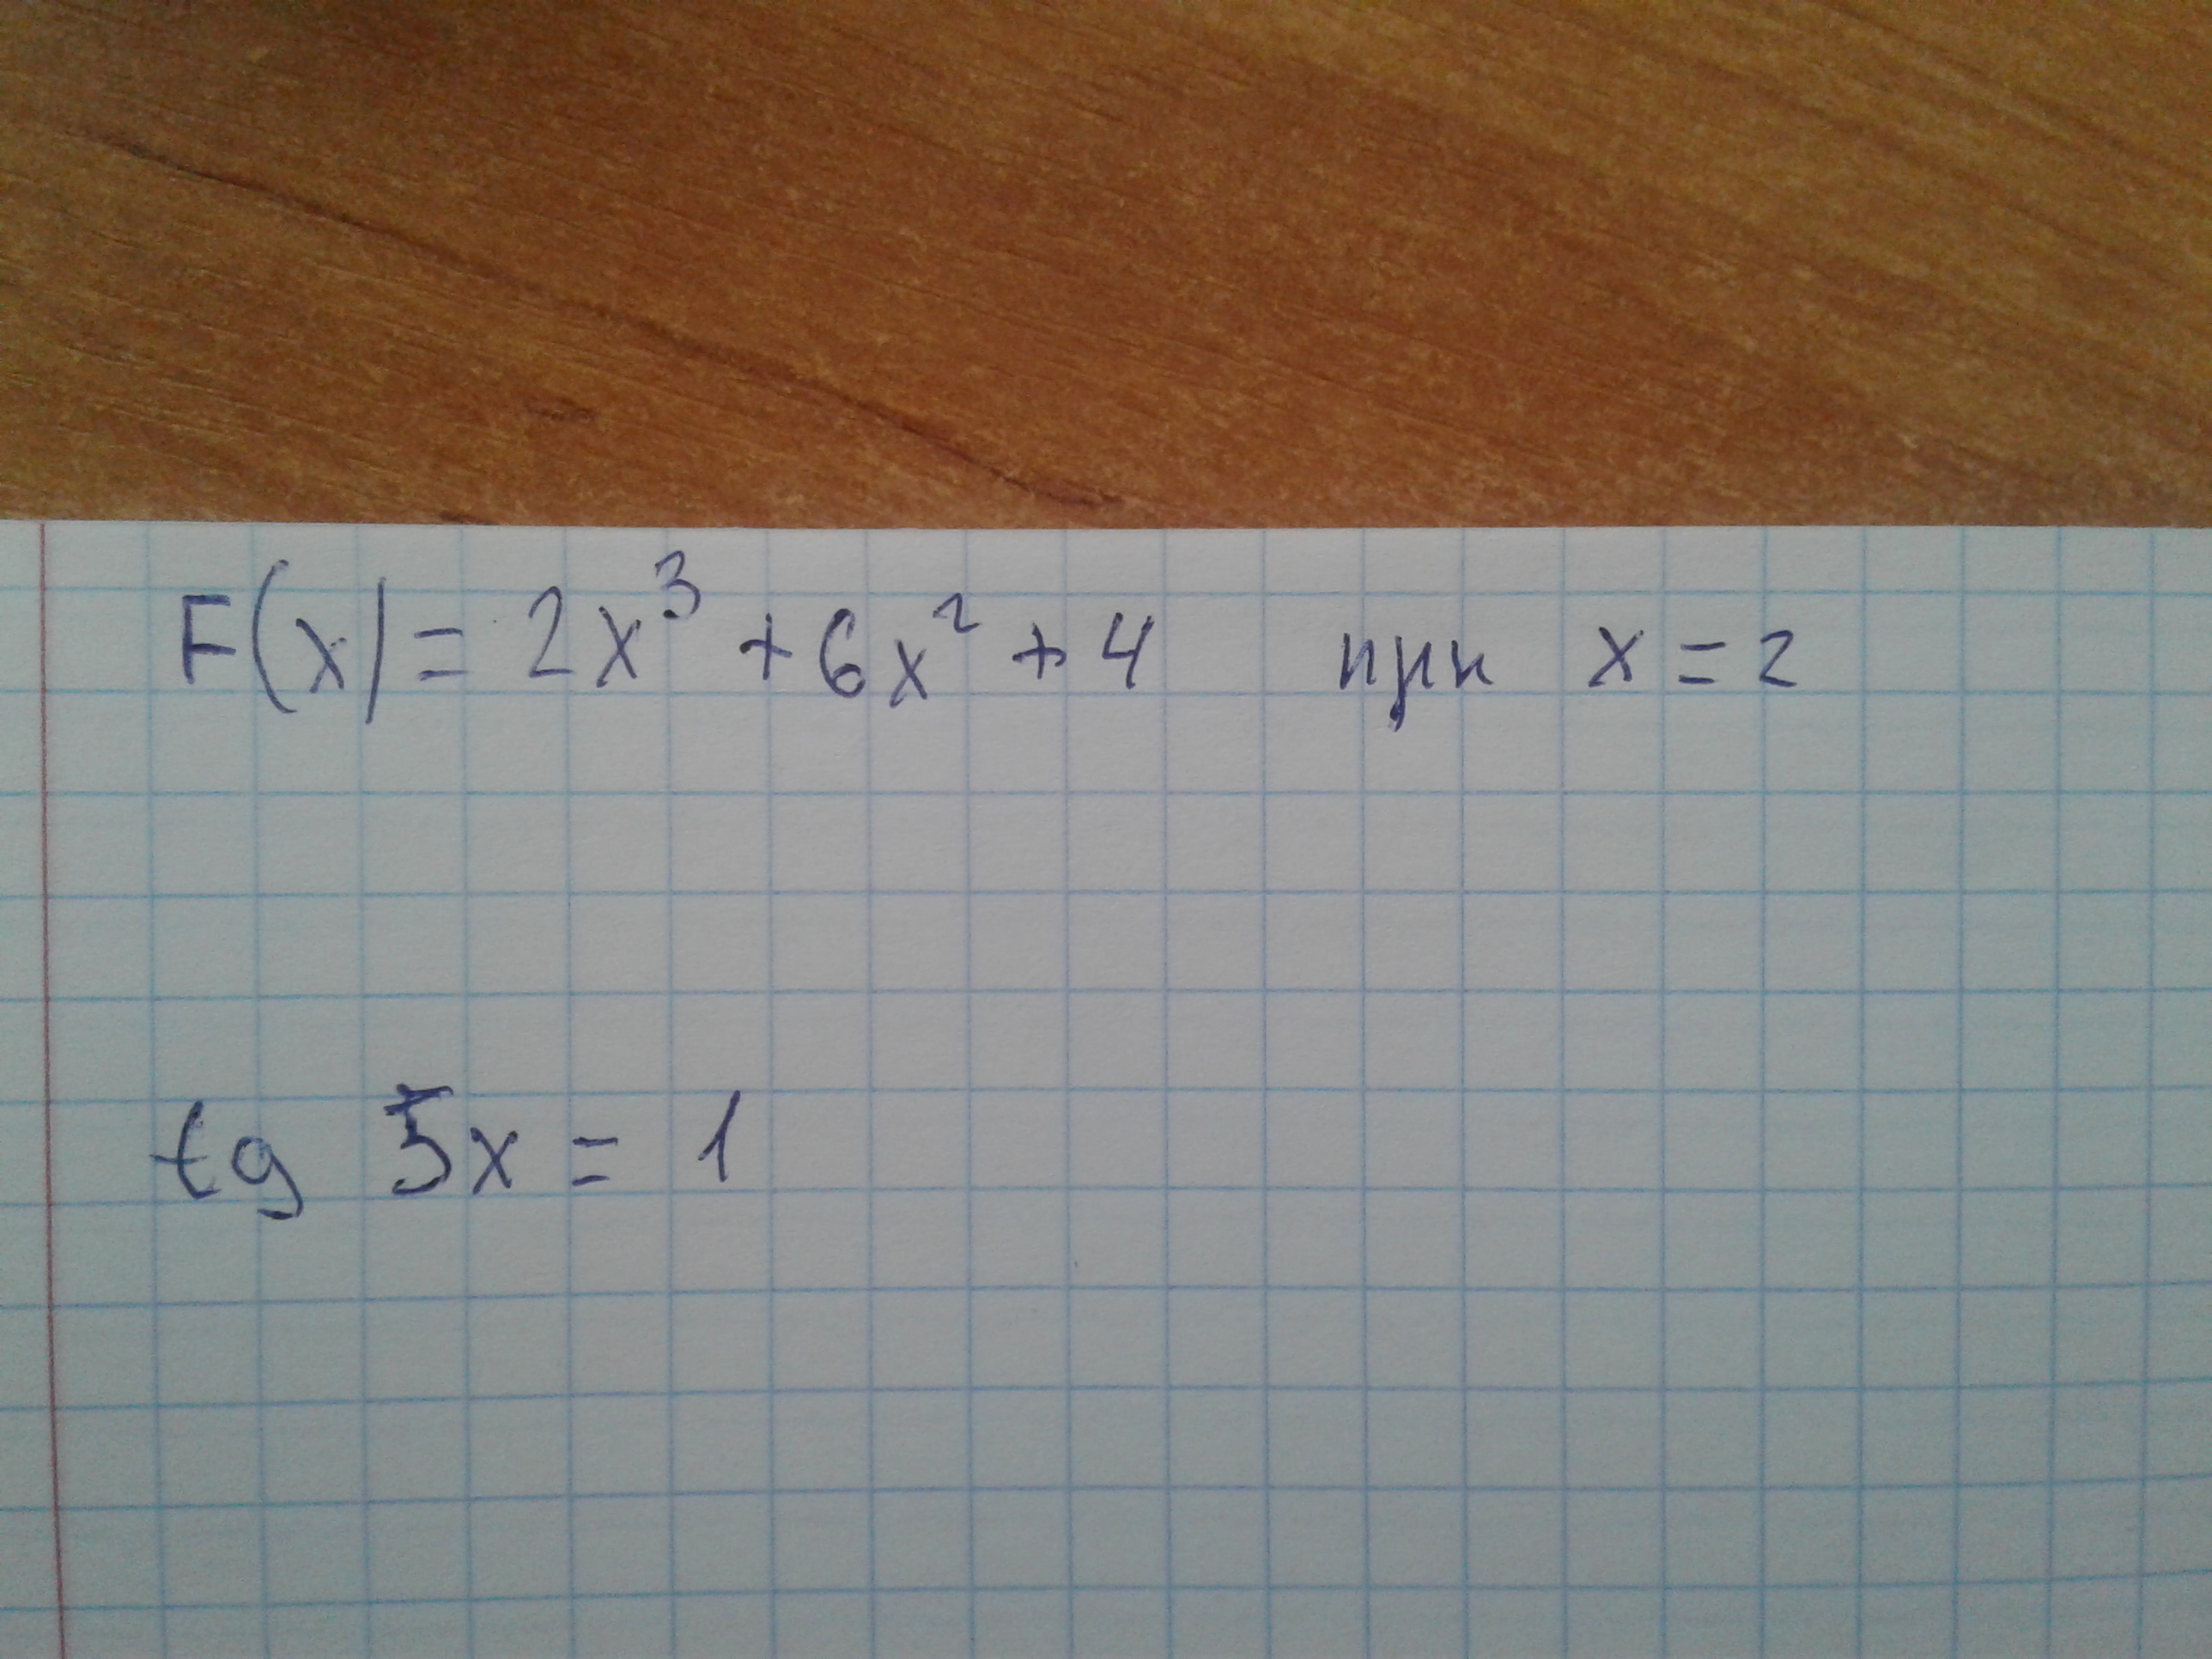 F(x)= 2x³ + 6x² + 4 при x = 2
tg 5x = 1